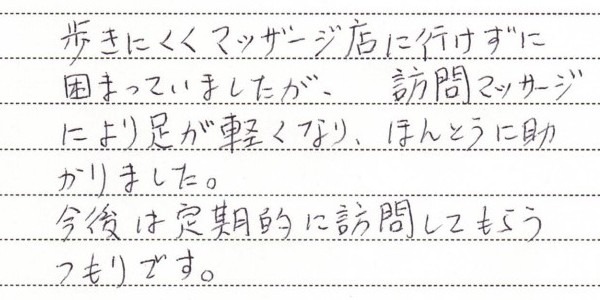 歩きにくくマッサージ店に行けずに
困まっていましたが、 訪問マッサージ
により足が軽くなり、ほんとうに助
かりました。
今後は定期的に訪問してもらう
つもりです。